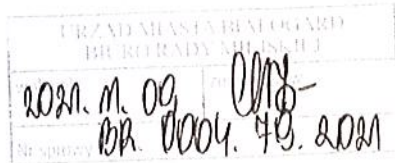 URZĄD MIASTA BIAŁOGARD
BIURO RADY MIEJSKIEJ
2021. 11. 09
Nr sprawy BR. 0004. 79. 2021